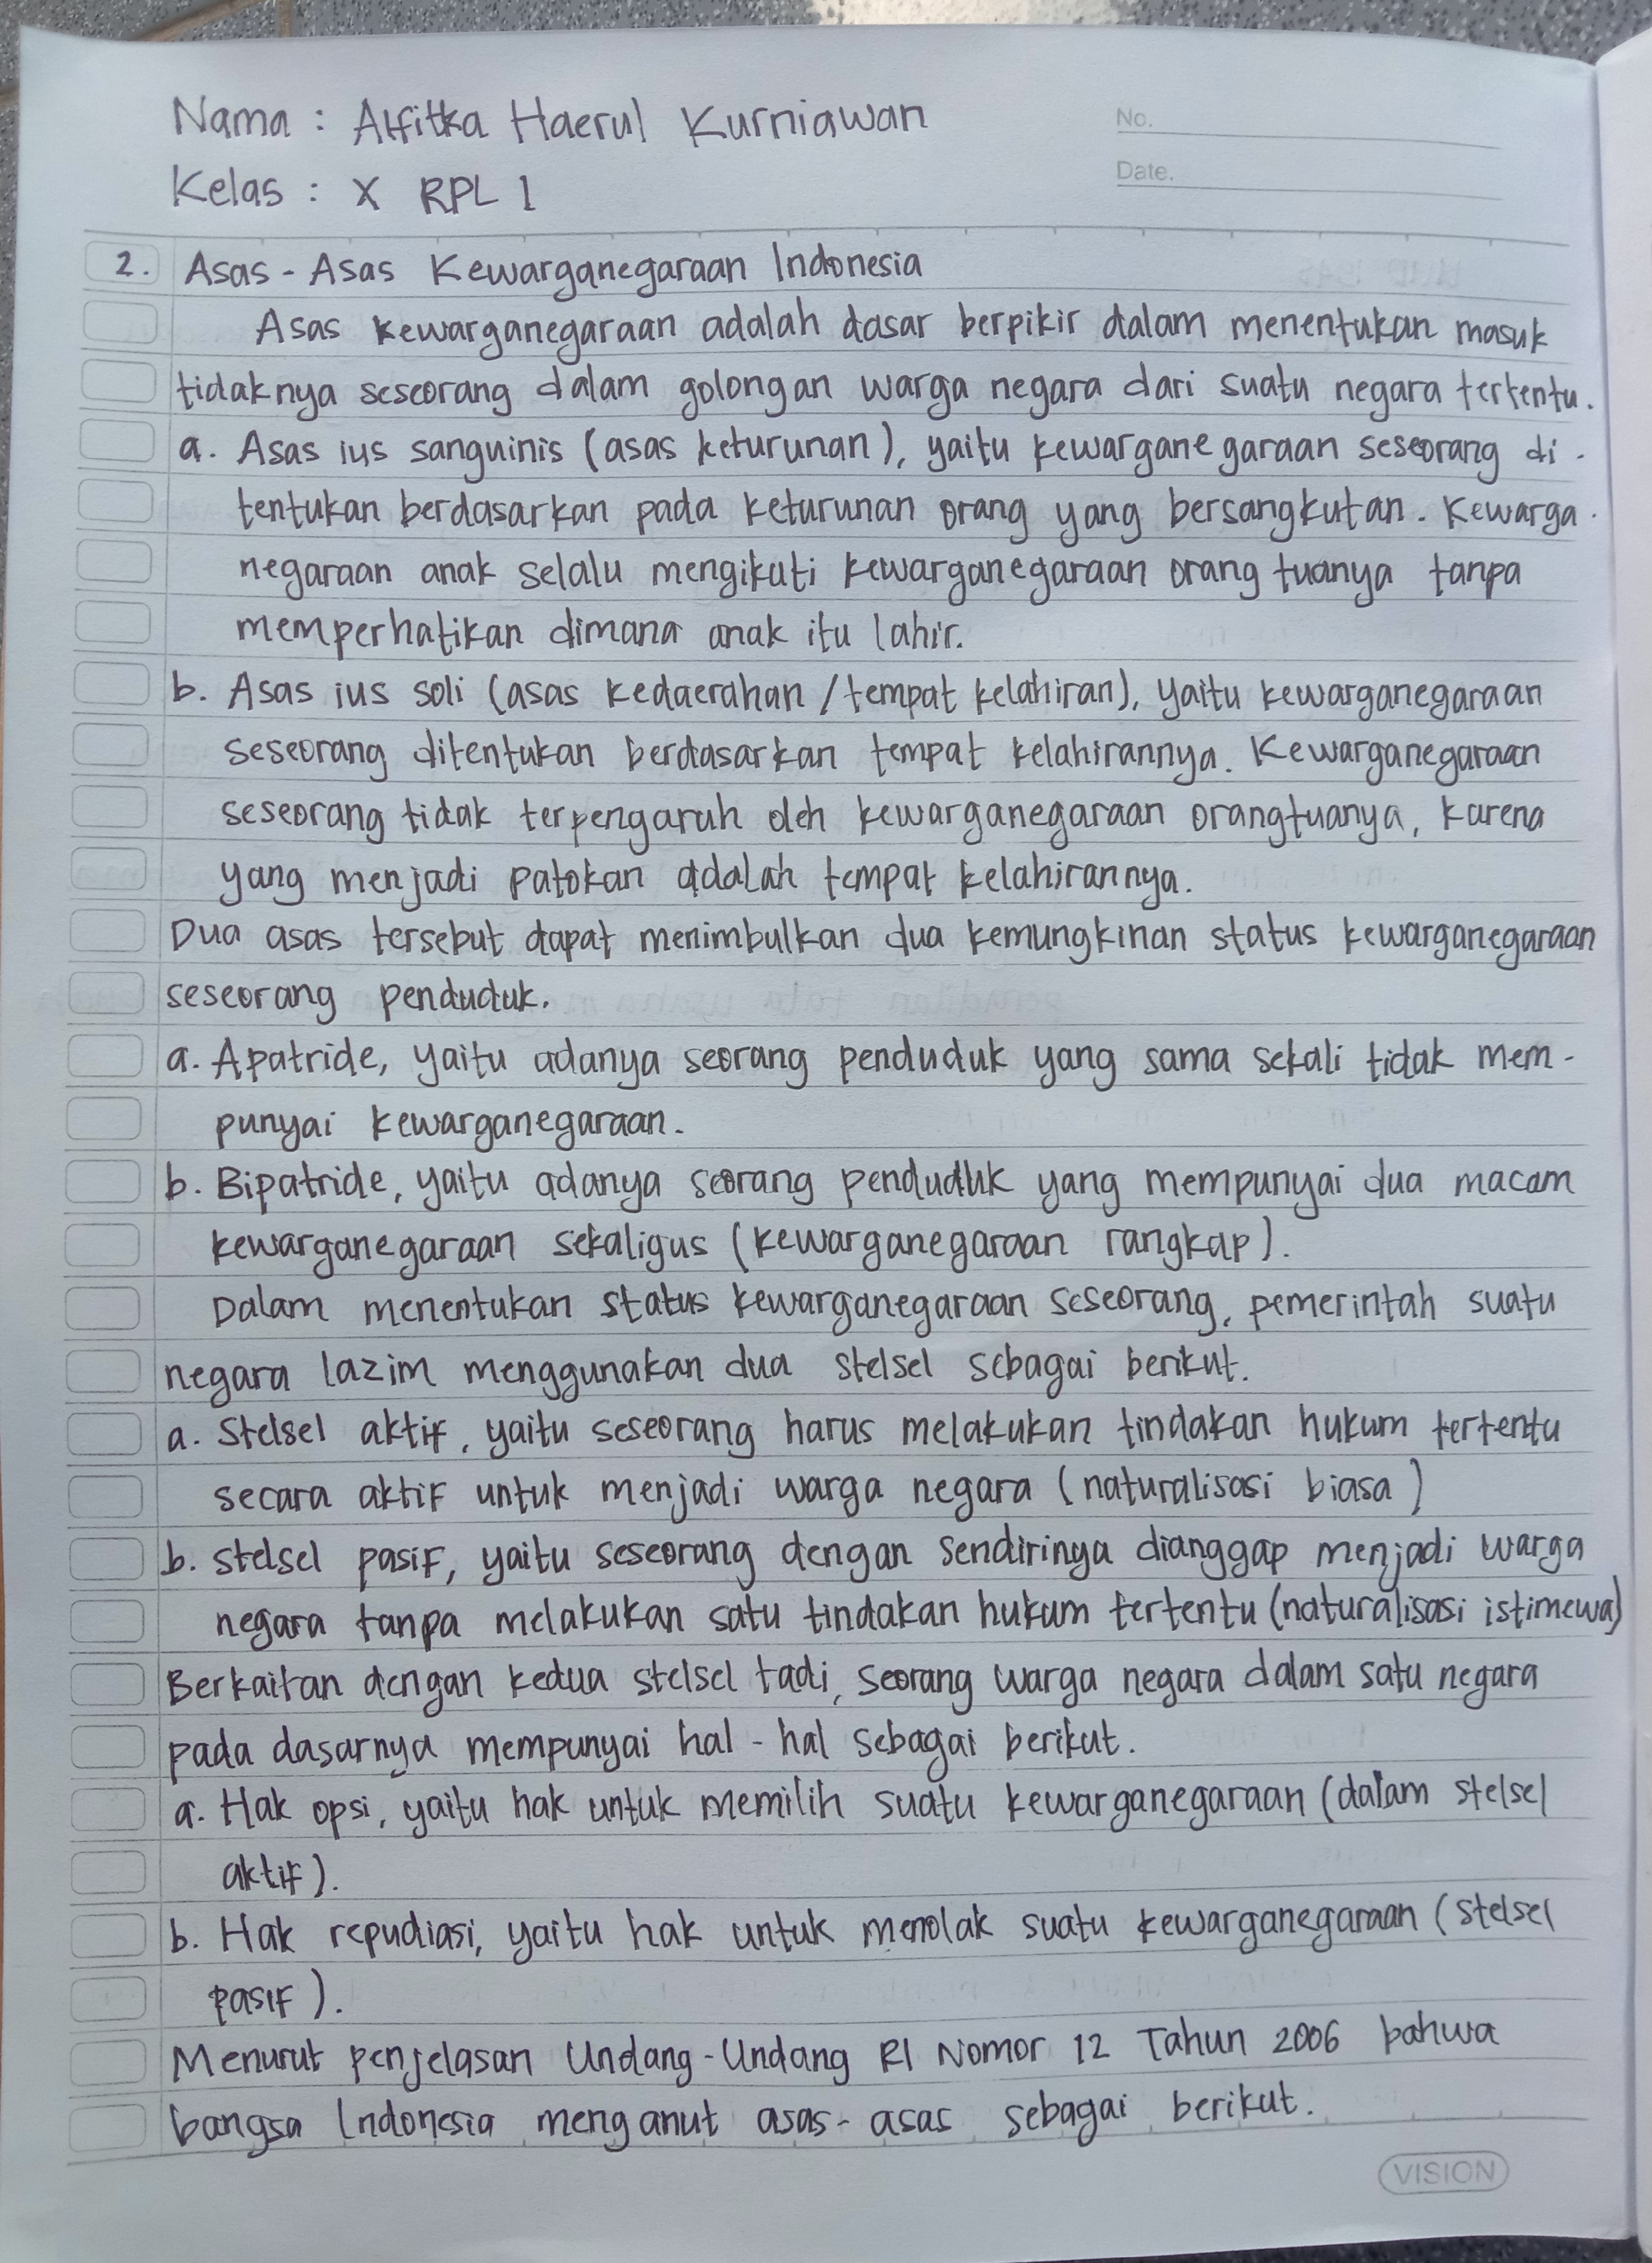 Nama : Alfitka Haerul Kurniawan
No.
Kelas : X RPL 1
Date.
2. Asas - Asas Kewarganegaraan Indonesia
Asas kewarganegaraan adalah dasar berpikir dalam menentukan masuk
tidaknya seseorang dalam golongan warga negara dari suatu negara tertentu.
a. Asas ius sanguinis (asas keturunan), yaitu kewarganegaraan seseorang di-
tentukan berdasarkan pada keturunan orang yang bersangkutan. Kewarga-
negaraan anak selalu mengikuti kewarganegaraan orang tuanya tanpa
memperhatikan dimana anak itu lahir.
b. Asas ius soli (asas kedaerahan/tempat kelahiran), yaitu kewarganegaraan
seseorang ditentukan berdasarkan tempat kelahirannya. Kewarganegaraan
seseorang tidak terpengaruh oleh kewarganegaraan orangtuanya, karena
yang menjadi patokan adalah tempat kelahirannya.
Dua asas tersebut dapat menimbulkan dua kemungkinan status kewarganegaraan
seseorang penduduk.
a. Apatride, yaitu adanya seorang penduduk yang sama sekali tidak mem-
punyai kewarganegaraan.
b. Bipatride, yaitu adanya seorang penduduk yang mempunyai dua macam
kewarganegaraan sekaligus (kewarganegaraan rangkap).
Dalam menentukan status kewarganegaraan seseorang, pemerintah suatu
negara lazim menggunakan dua stelsel sebagai berikut.
a. Stelsel aktif, yaitu seseorang harus melakukan tindakan hukum tertentu
secara aktif untuk menjadi warga negara (naturalisasi biasa)
b. stelsel pasif, yaitu seseorang dengan sendirinya dianggap menjadi warga
negara tanpa melakukan satu tindakan hukum tertentu (naturalisasi istimewa)
Berkaitan dengan kedua stelsel tadi, seorang warga negara dalam satu negara
pada dasarnya mempunyai hal - hal sebagai berikut.
a. Hak opsi, yaitu hak untuk memilih suatu kewarganegaraan (dalam stelsel
aktif).
b. Hak repudiasi, yaitu hak untuk menolak suatu kewarganegaraan (stelsel
pasif).
Menurut penjelasan Undang-Undang RI Nomor 12 Tahun 2006 bahwa
bangsa Indonesia menganut asas-asas sebagai berikut.
VISION